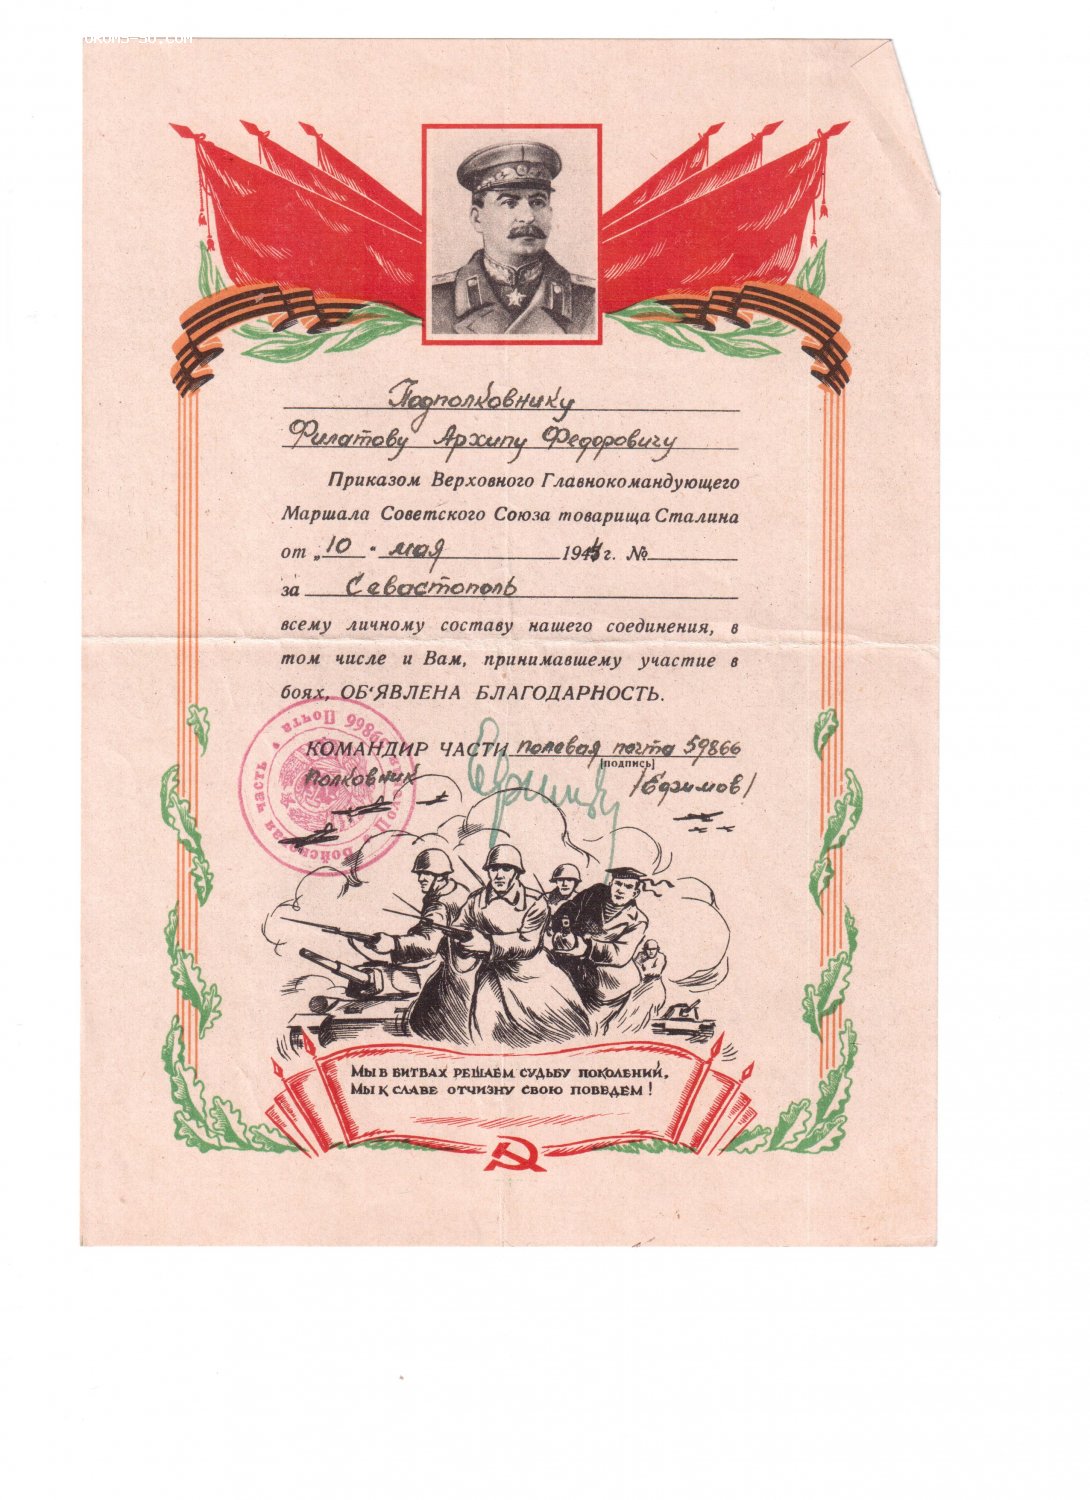 Подполковнику
Филатову Архипу Федоровичу
Приказом Верховного Главнокомандующего
Маршала Советского Союза товарища Сталина
от „10" мая 1944 г. №
за Севастополь
всему личному составу нашего соединения, в
том числе и Вам, принимавшему участие в
боях, ОБ‘ЯВЛЕНА БЛАГОДАРНОСТЬ.
КОМАНДИР ЧАСТИ полевая почта 59866
[подпись]
Полковник /Ефимов/
Войсковая часть • Полевая Почта 59866
МЫ В БИТВАХ РЕШАЕМ СУДЬБУ ПОКОЛЕНИЙ,
МЫ К СЛАВЕ ОТЧИЗНУ СВОЮ ПОВЕДЕМ!